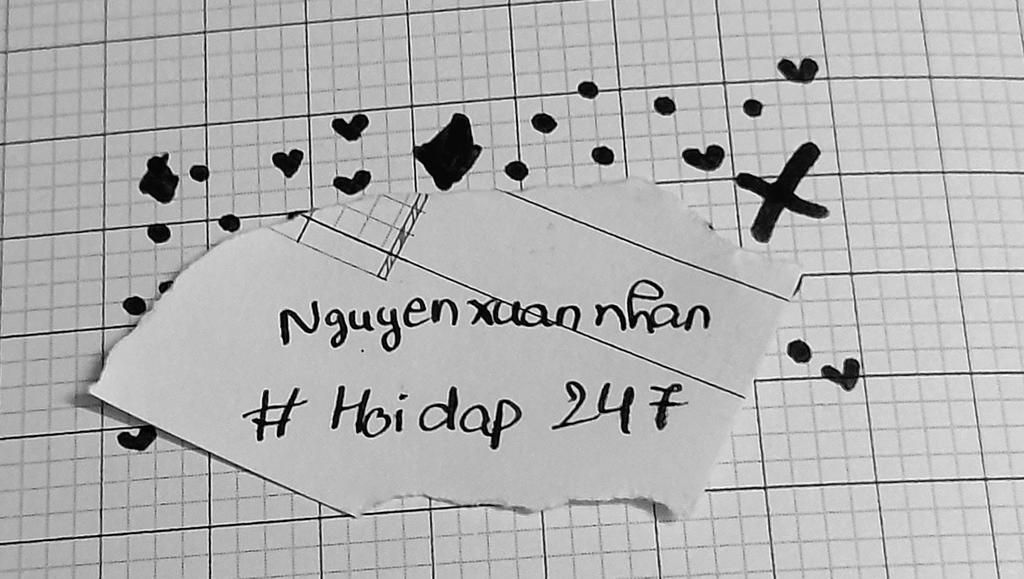 Nguyen xuan nhân
# Hoi dap 247